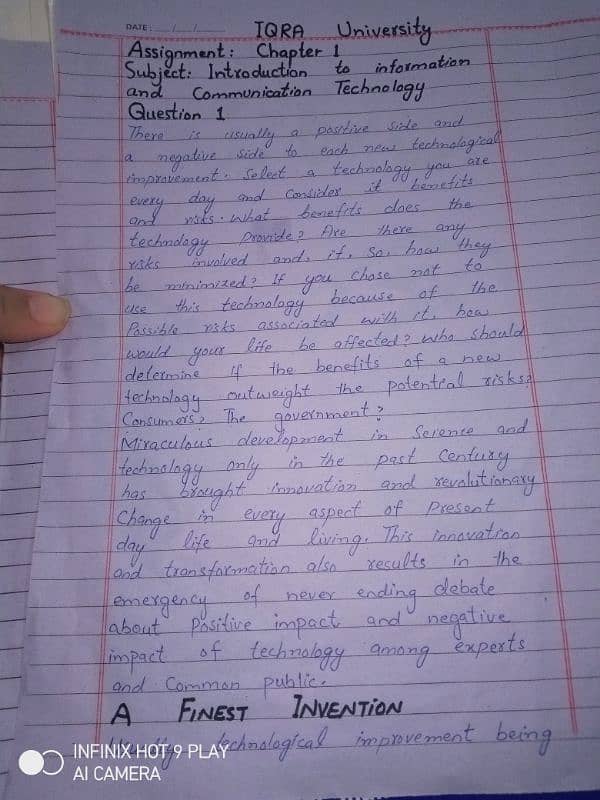 DATE: / /
IQRA University
Assignment: Chapter 1
Subject: Introduction to information
and Communication Technology
Question 1
There is usually a positive side and
a negative side to each new technological
improvement. Select a technology you are
every day and Consider it benefits
and risks. What benefits does the
technology Provide? Are there any
risks involved and, if, So, how they
be minimized? If you chose not to
use this technology because of the
Possible risks associated with it, how
would your life be affected? Who should
determine if the benefits of a new
technology outweight the potential risks?
Consumers? The government?
Miraculous development in Science and
technology only in the past Century
has brought innovation and revolutionary
Change in every aspect of Present
day life and living. This innovation
and transformation also results in the
emergency of never ending debate
about Positive impact and negative
impact of technology among experts
and Common public.
A FINEST INVENTION
technological improvement being
INFINIX HOT 9 PLAY
AI CAMERA